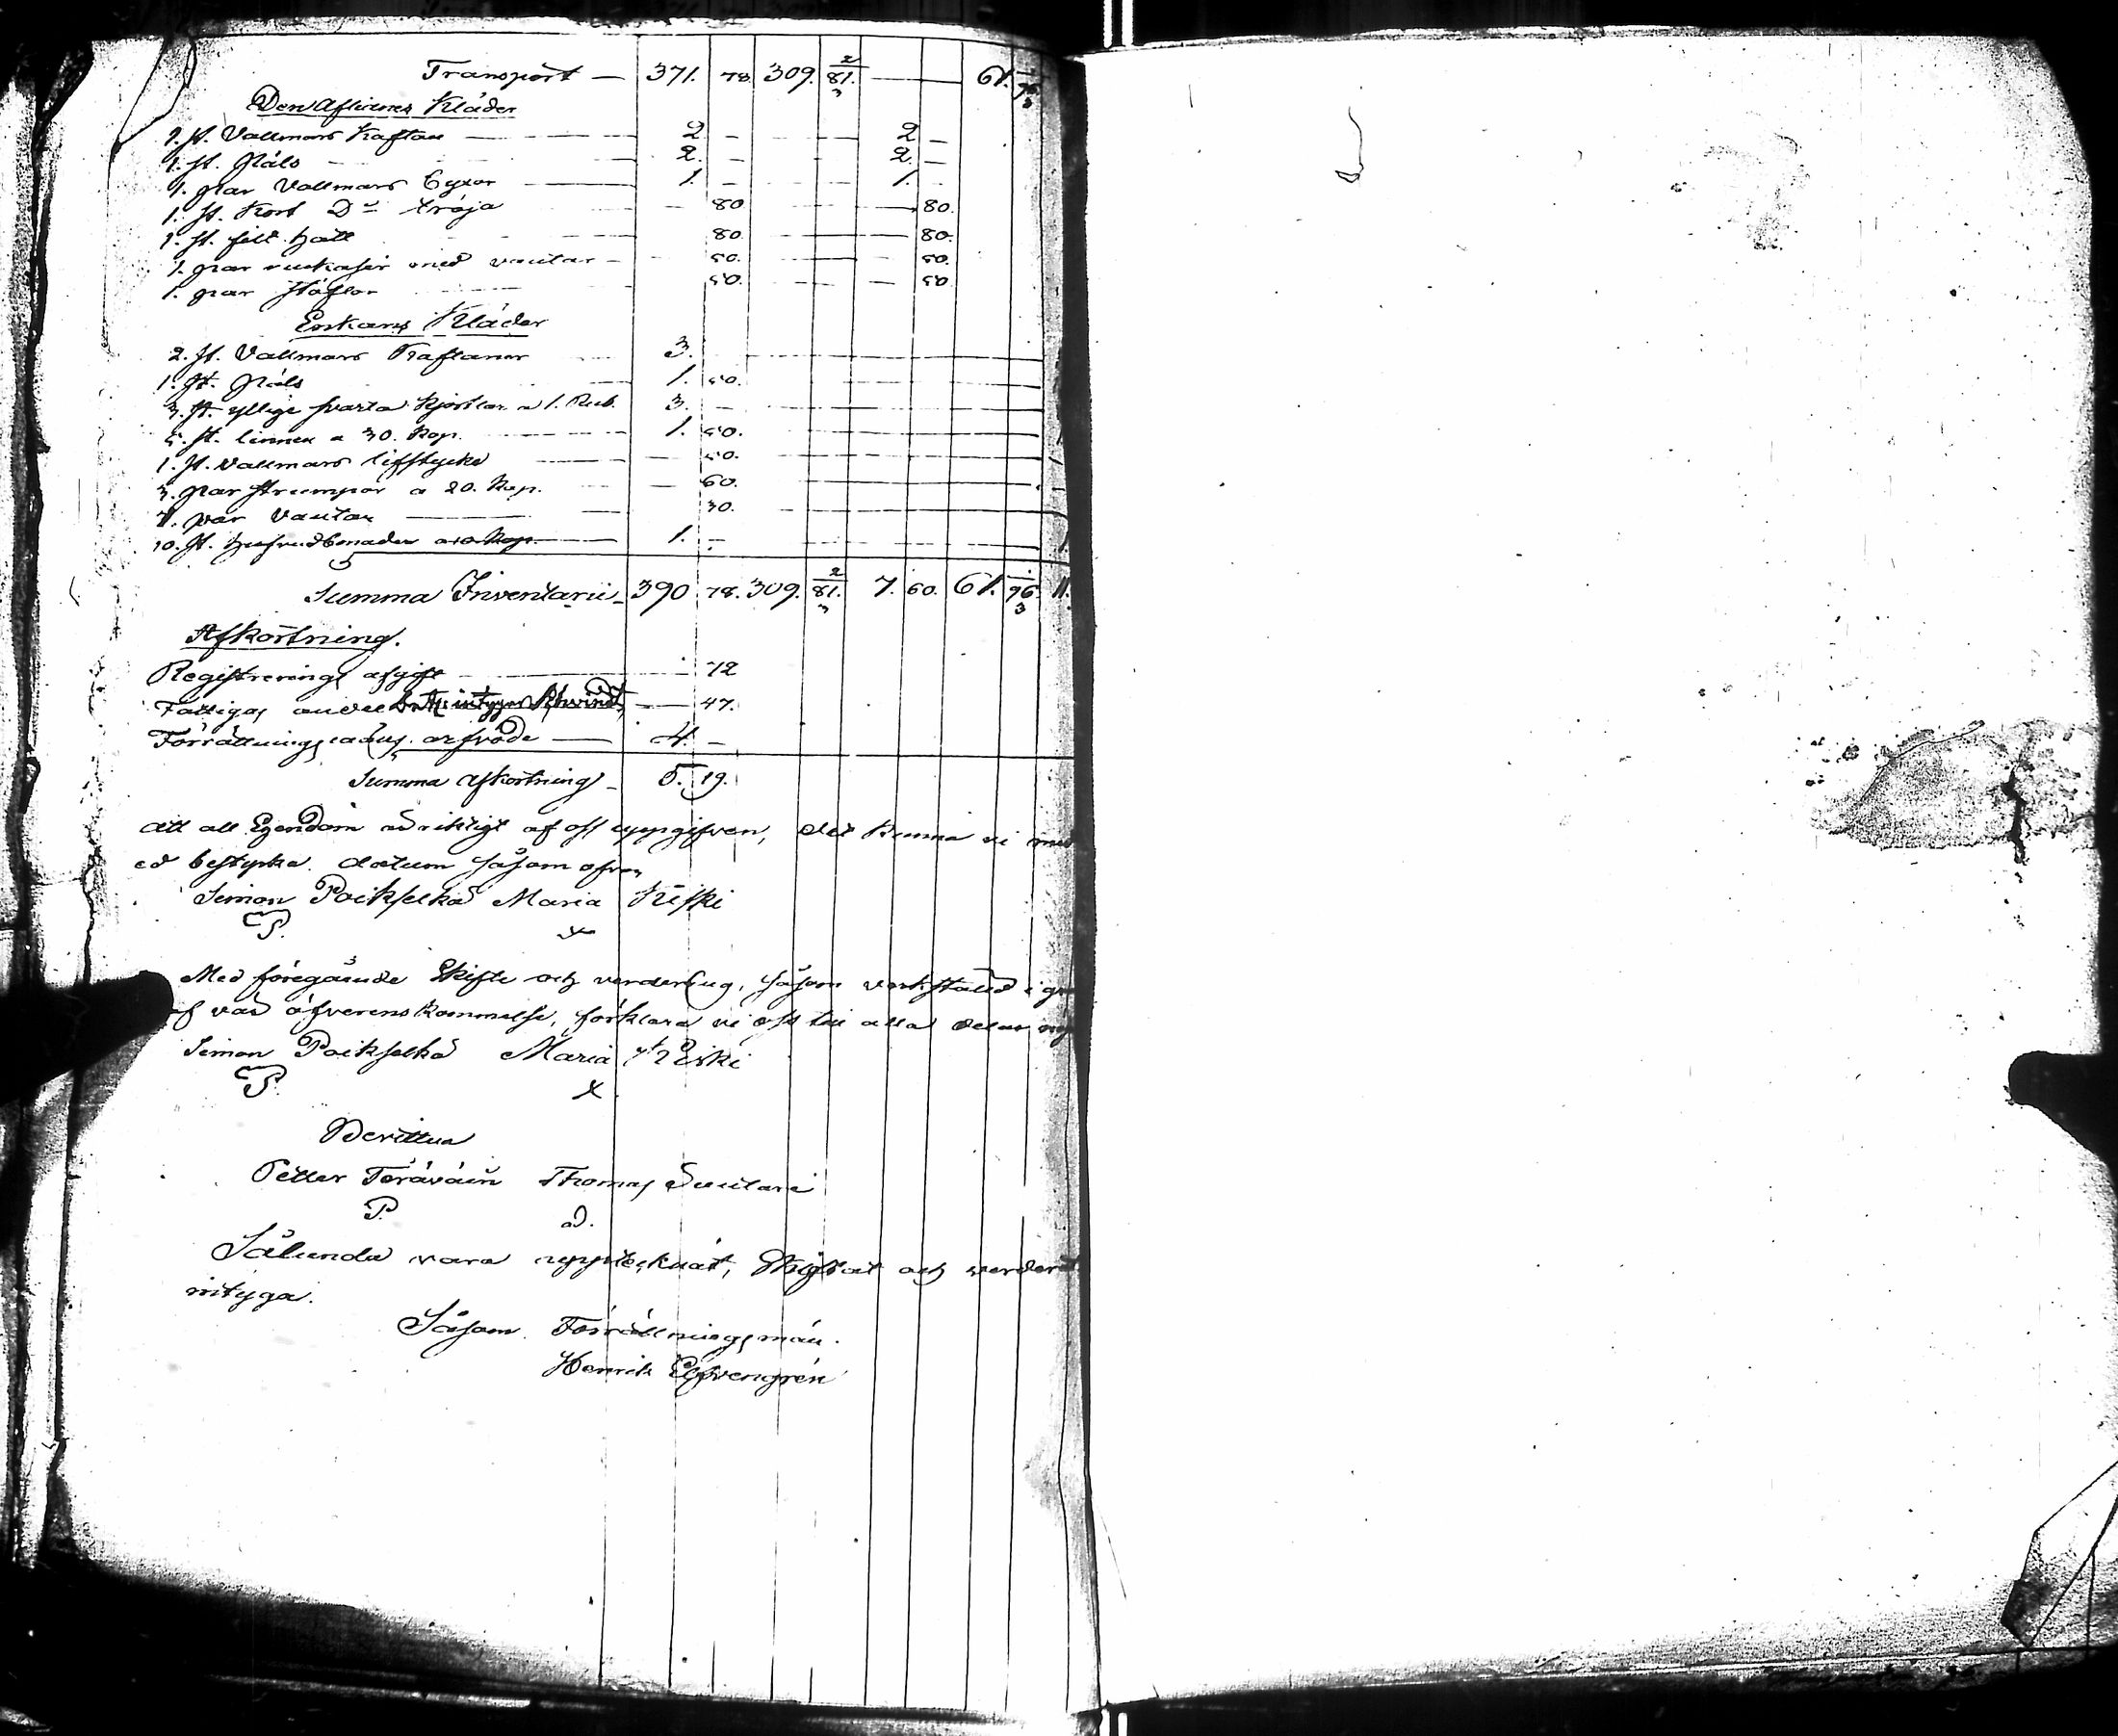 Transport — 371. 78. 309. 2/81. 3 — 61. 96. 3
Den Aflidnes Kläder
1. st. Vallmars Kaftan — 2 — 2 —
1. st. Päls — 2. — 2. —
1. par Vallmars Byxor — 1. — 1. —
1. st. Kort Do tröja — 80. — 80.
1. st. filt hatt — 80. — 80.
1. par med vantar — 50. — 50.
1. par Stöflor — 50. — 50
Enkans Kläder
2. st. Vallmars Kaftaner 3.
1. st. Päls 1. 50.
3. st. yllige svarta Kjortlar a 1. Rub. 3. —
5. st. linnen a 30. Kop. 1. 50.
1. st. Vallmars lifstycke — 50.
3. par strumpor a 20. Kop. — 60.
1. par Vantar — 30.
10. st. hufvudbonader a 10 Kop. 1. —
Summa Inventarii 390 78. 309. 2/81. 3 7. 60. 61. 96. 3 11.
Afkortning.
Registrerings afgift — 72
Fattigas andel — 47.
Förrättningsmans arfvode — 4. —
Summa Afkortning 5. 19.
Att all Egendom är riktigt af oss uppgifven, det kunna vi med
ed bestyrka. datum såsom ofvan
Simon Paikselkä Maria Kiski
P. x
Med föregående Skifte och värdering, såsom verkstäld i
af vår öfverenskommelse, förklara vi oss till alla delar
Simon Paikselkä Maria Kiski
P. x
Bevittna
Petter Teräväin Thomas Suutari
P. S.
Sålunda vara upptecknat, Skiftat och värderat
intyga.
Såsom Förrättningsman.
Henrik Elfvengrén